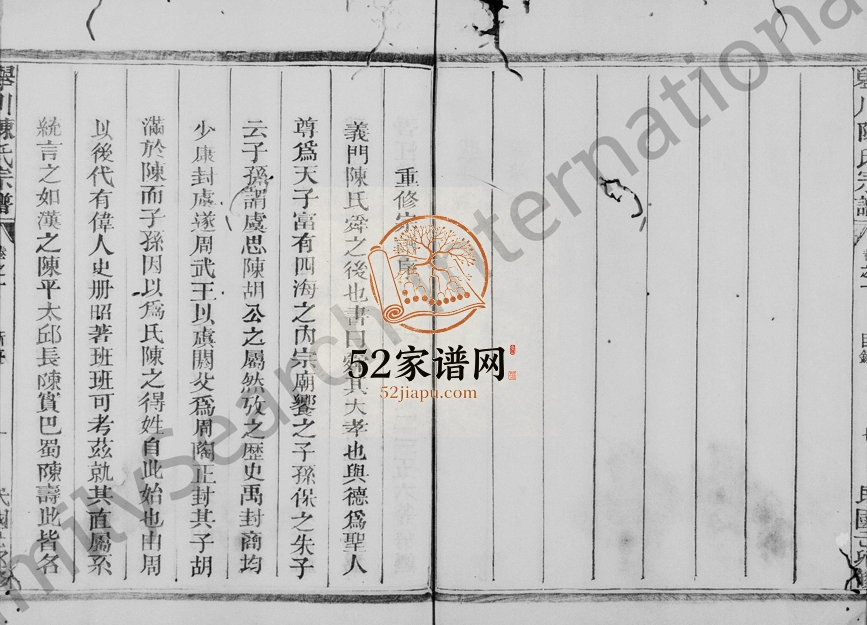 重修宗譜序
義門陳氏舜之後也書曰舜其大孝也與德爲聖人
尊爲天子富有四海之內宗廟饗之子孫保之朱子
云子孫謂虞思陳胡公之屬然攷之歷史禹封商均
少康封虞遂周武王以虞閼父爲周陶正封其子胡
滿於陳而子孫因以爲氏陳之得姓自此始也由周
以後代有偉人史册昭著班班可考茲就其直屬系
統言之如漢之陳平太邱長陳寔巴蜀陳壽此皆名
川陳氏宗譜
川陳氏宗譜
民國
民國
52家谱网
52jiapu.com
milySearch International